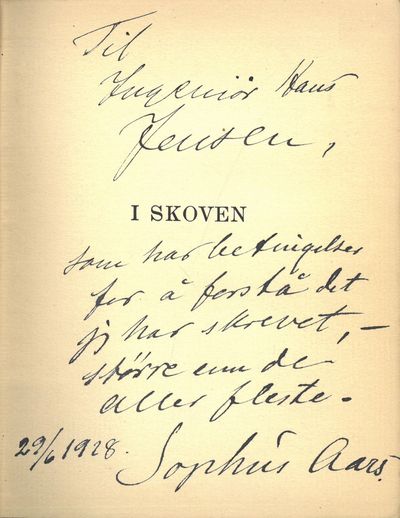 Til
Ingeniør Hans
Jensen,
I SKOVEN
som har betingelser
for å forstå det
jeg har skrevet, –
större enn de
aller fleste –
29/6 1928.
Sophus Aars.